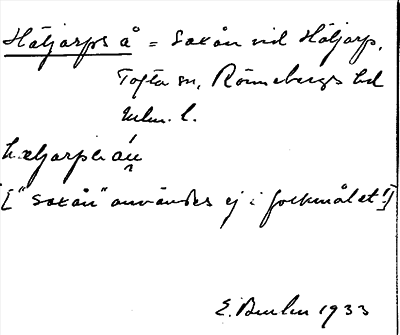 Häljarps å = Saxån vid Häljarp,
Tofta sn, Rönnebergs hd
Mlm. l.
hæljarpsa
["Saxån" användes ej i folkmålet!]
E. 1933